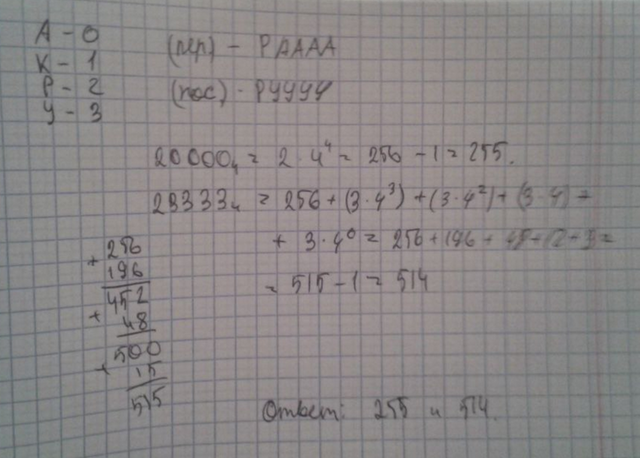 А - 0
К - 1
Р - 2
У - 3
(пер) - РАААА
(пос) - РУУУУ
20000₄ = 2·4⁴ = 256 - 1 = 255.
23333₄ = 256 + (3·4³) + (3·4²) + (3·4) +
+ 3·4⁰ = 256 + 196 + 48 + 12 + 3 =
= 515 - 1 = 514
256
+
196
452
+
48
500
+
15
515
Ответ: 255 и 514.